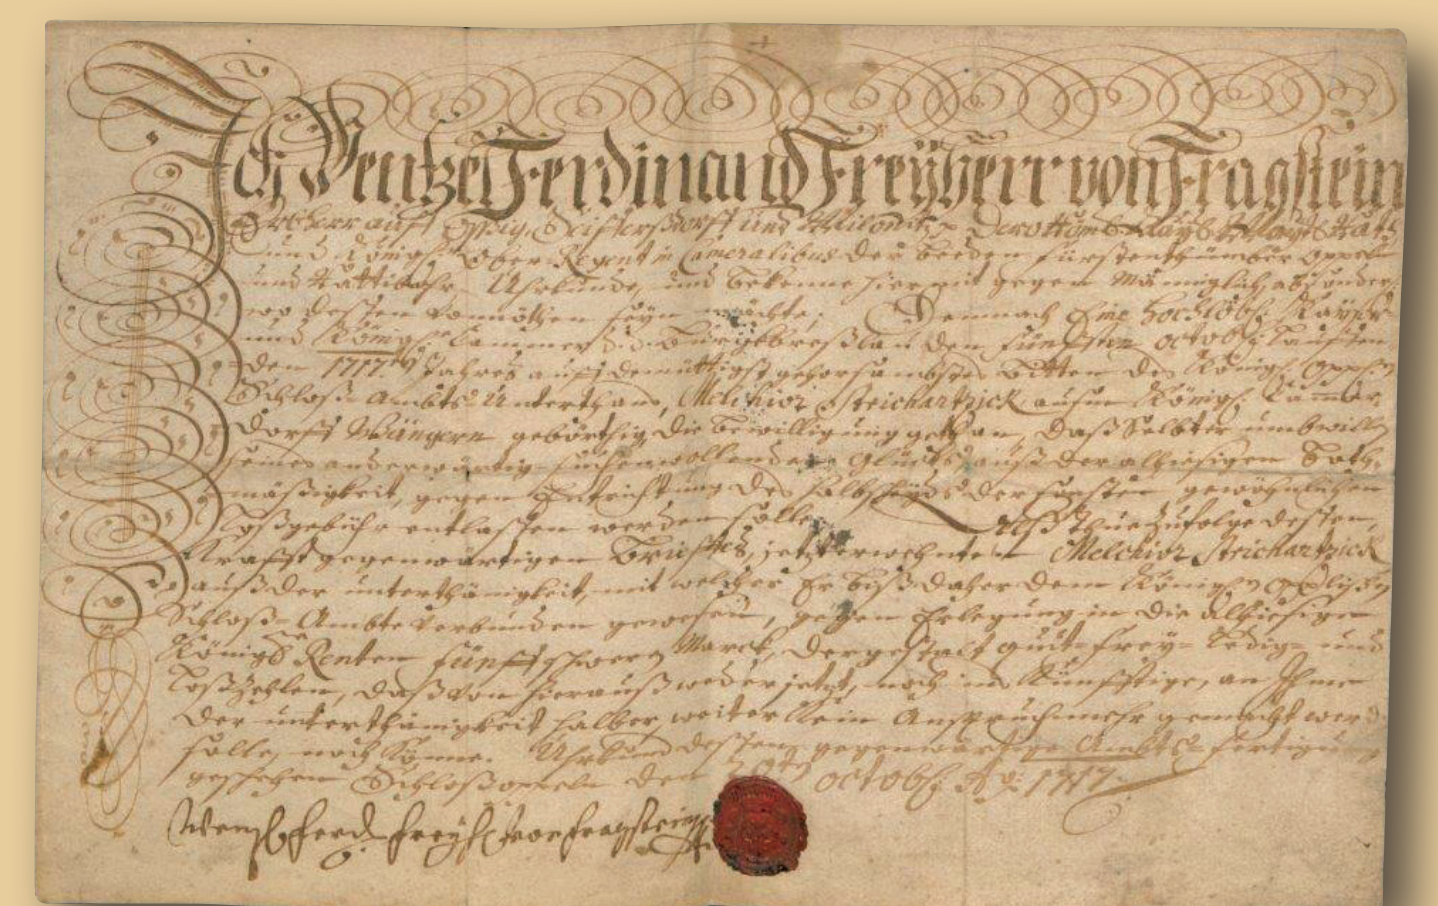 Ich Wentzel Ferdinand Freÿherr von Fragstein
Erbherr auff Seiffersdorff und Milonitz, Dero Röm. Kaÿs. Maÿt. Rath
und Königl. Ober-Regent in Cameralibus der beeden Fürstenthümber Oppeln
und Rattibohr, Uhrkunde, und bekenne hiermit gegen Männiglich, absonder-
wo dessen vonnöthen seÿn möchte, Demnach Eine Hochlöbl. Kaÿser
und Königl. Cammer zu Breßlau den fünfften Octobris lauffen
den 1717ten Jahres auff demüttigst gehorsambstes Bitten des Königl. Oppl.
Schloß-Ambts-Unterthans, Melchior Steichartzick, aus Königl. Cammer
Dorff gebörthig die Bewilligung gethan, daß Selbter umbwillen
seines anderwärtig suchen wollenden Glücks auß der alhiesigen Both-
mäßigkeit, gegen Entrichtung des der sonsten gewöhnlichen
Loßgebühr entlassen werden solle, Alß thue zufolge dessen,
Krafft gegenwärtigen Brieffes, jetzt erwehnten Melchior Steichartzick
auß der unterthänigkeit, mit welcher Er biß daher dem Königl. Opplischen
Schloß-Ambte verbunden gewesen, gegen Erlegung in die alhiesige
Königl. Renten fünff schwere Marck, dergestalt quit- freÿ- ledig- und
loßzehlen, daß von hierauß weder jetzt, noch ins Künfftige, an Ihme
der unterthänigkeit halber weiter kein Anspruch mehr gemacht werden
solle, noch könne. Uhrkund dessen gegenwärtige Ambts-fertigung
geschehen Schloß Oppeln den Octobris Ao: 1717
Wentzl Ferd. Freÿh. von Fragstein